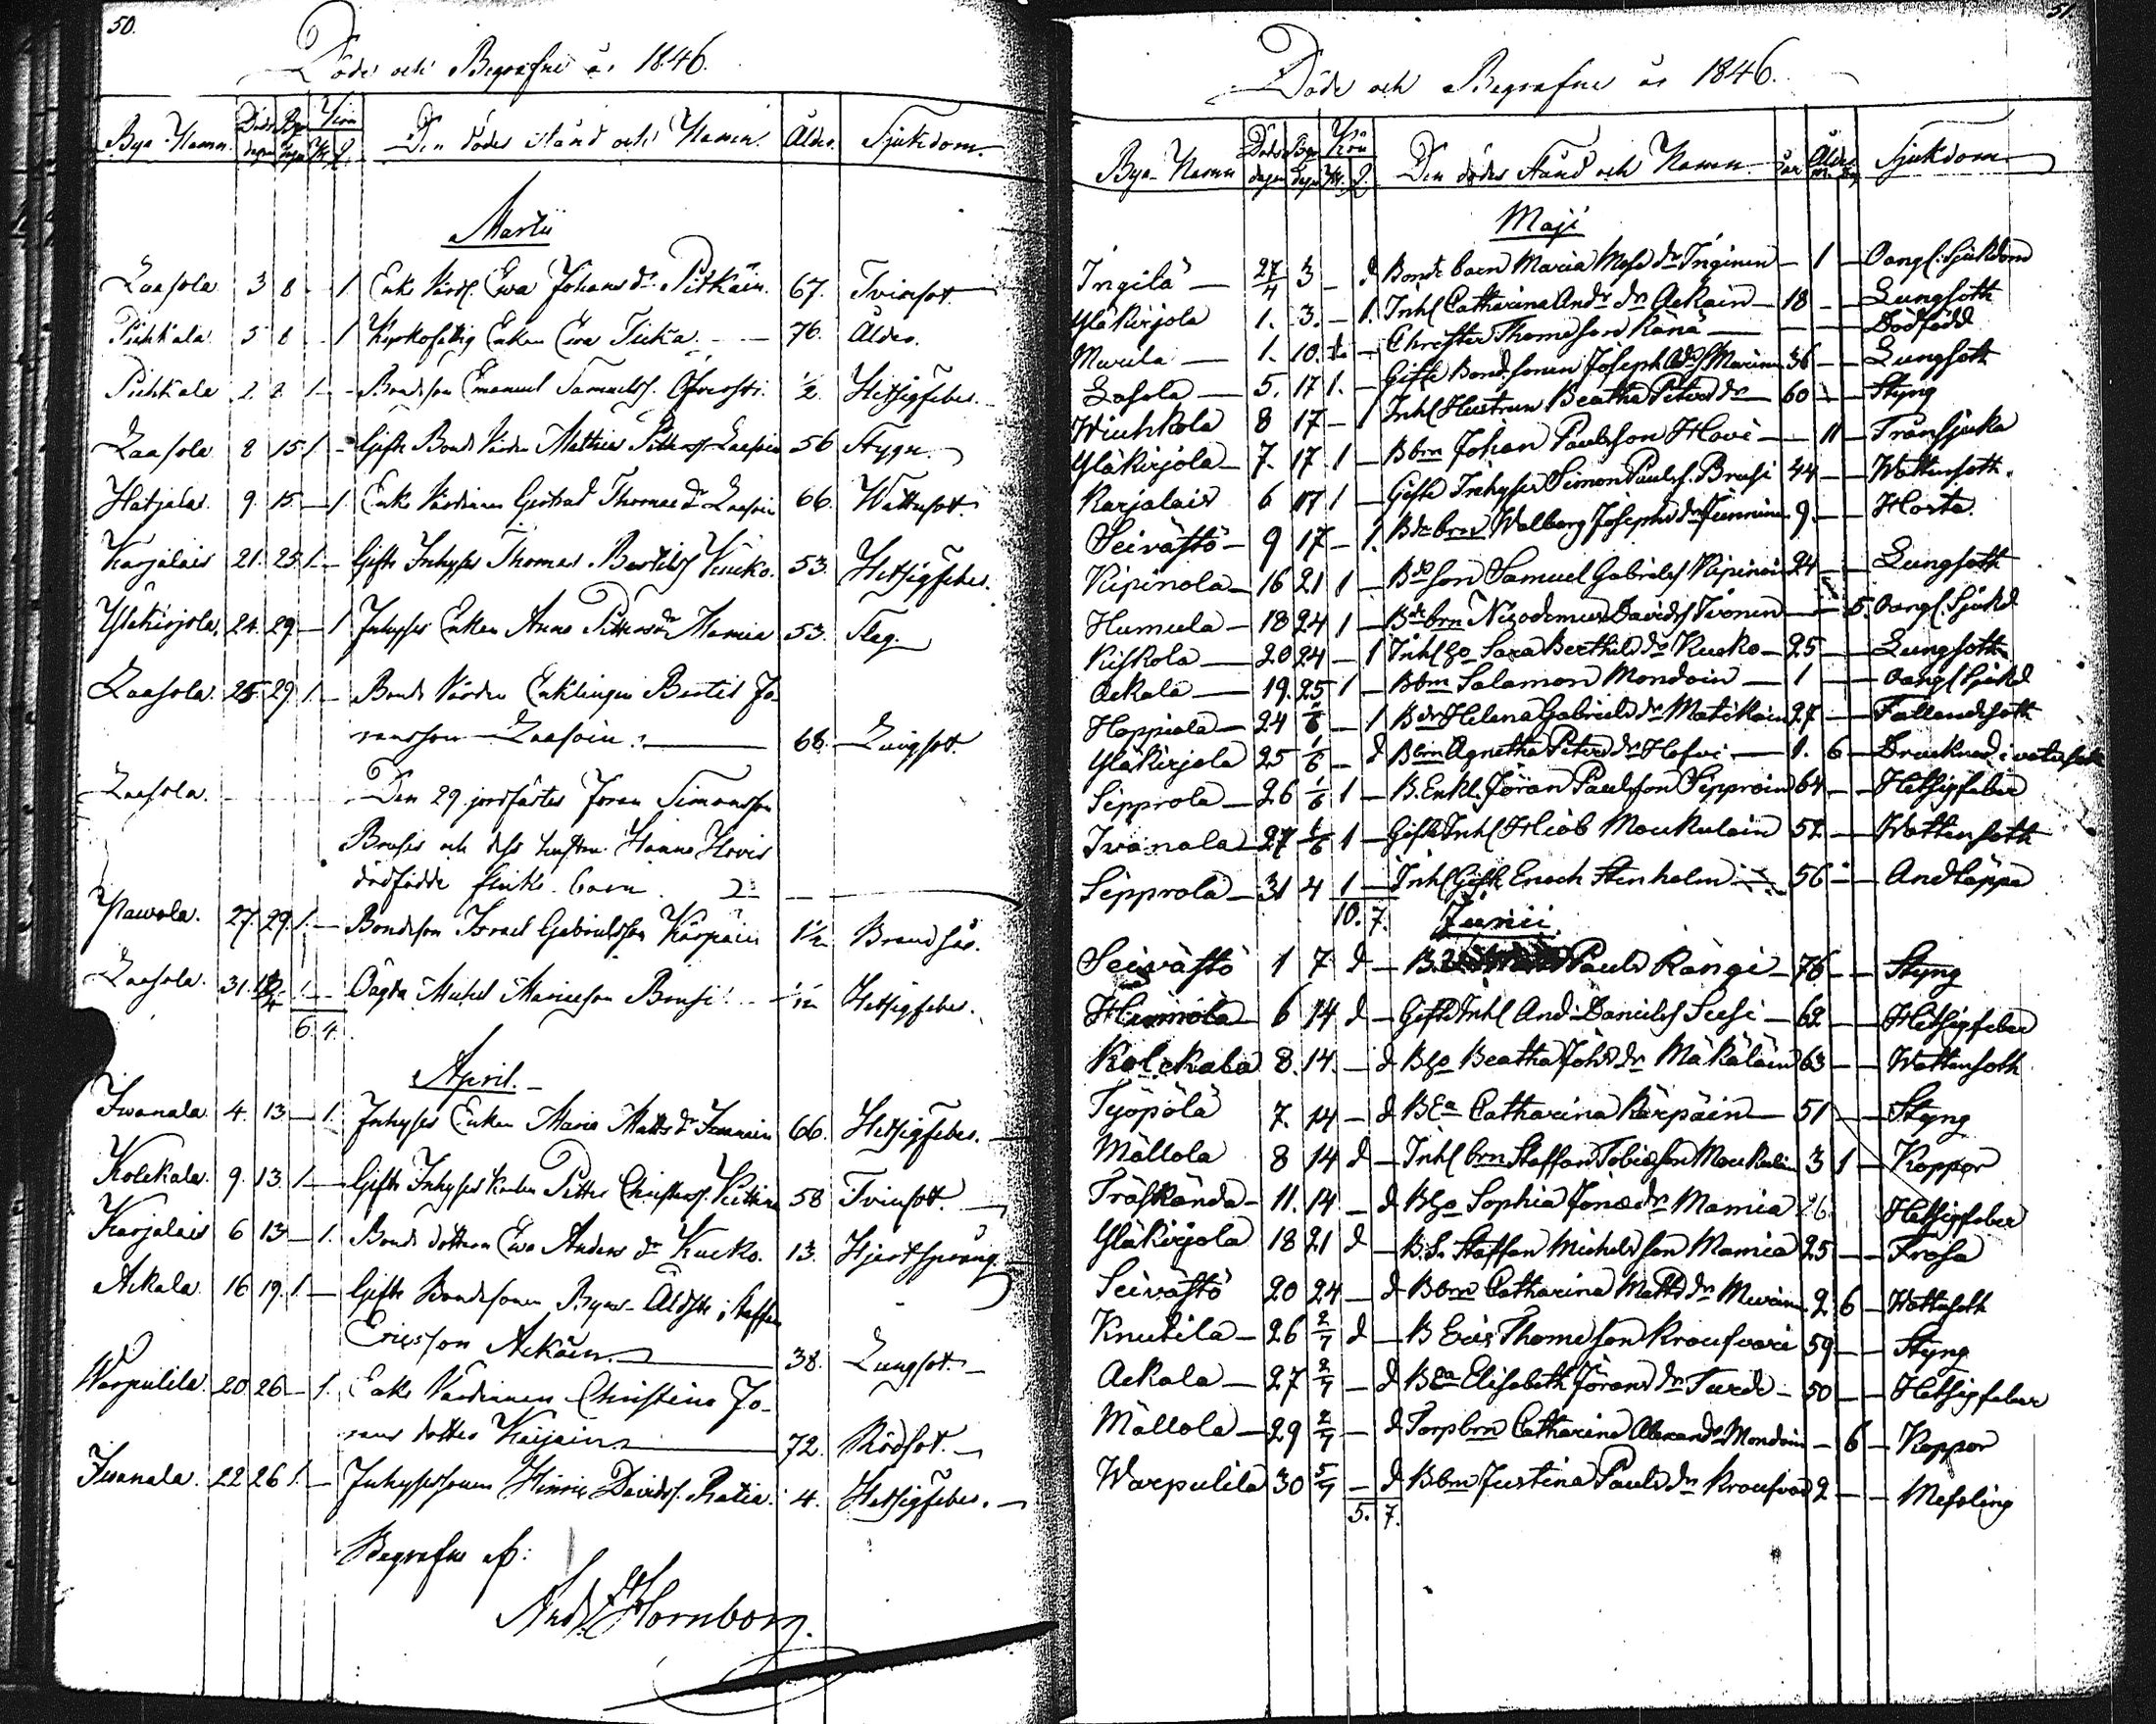 50.
Döde och Begrafne år 1846.
Bya Namn. Döds dagen Begr. dagen Kön M. Q. Den dödes stånd och Namn. Ålder. Sjukdom.
Martii
Laasola 3 8 - 1 Enke Värd. Ewa Johans dr Pitkäin. 67. Tvinsot.
Pihkala 5 8 - 1 Kyrkofattig Enkan Ewa Tiika 76. Ålder.
Pihkala 2. 2. 1 - Bondeson Emanuel Samuels. ½. Hetsigfeber.
Laasola 8 15 1 - Gifte Bonde Värden Mathias Petters. Laasoin 56 Stygn.
Hatjala. 9. 15. - 1. Enke Värdinnan Gertrud Thomas dr Laasoin 66. Wattusot.
Karjalais 21. 25. 1. - Gifte Inhyses Thomas Bertils. Kuuko. 53. Hetsigfeber.
Yläkirjola. 24. 29. - 1 Inhyses Enkan Anna Petters dr Mamia 53. Slag.
Laasola. 25. 29. 1. - Bonde Värden Enklingen Bertil Jö-
ransson Laasoin. 68. Lungsot.
Laasola. Den 29 jordfästes Jöran Simonsson
Brusis och dess hustru Hanna Hovis
dödfödde flicke barn. 2
Pawola. 27. 29. 1. - Bondeson Israel Gabrielsson Kärpäin 1½ Brandsår.
Laasola. 31. 1. - Oägta Michel Mariæson Brusi Hetsigfeber.
6. 4.
April.
Iwanala. 4. 13 - 1. Inhyses Enkan Maria Matts dr 66. Hetsigfeber.
Kolckala. 9. 13. 1. - Gifte Inhyses Karlen Petter Christers. 58 Tvinsot.
Karjalais 6 13 - 1. Bonde dottren Ewa Anders dr Kucko. 13. Hjertsprång.
Ackala. 16 19. 1. - Gifte Bondesonen Byns Åldste Staffan
Ericsson Ackäin. 38. Lungsot.
Warpulila. 20 26 - 1. Enke Värdinnan Christina Jö-
rans dotter Kaijain 72. Rödsot.
Iwanala. 22 26 1. - Inhysessonen Hinric Davids. Ratia. 4. Hetsigfeber.
Begrafne af:
And. Hornborg.
51.
Döde och Begrafne år 1846.
Bya-Namn Döds dagen Begr. dagen Kön M. Q. Den dödes stånd och Namn år Ålder m. dag Sjukdom
Maji
Ingilä 27/4 3 - d Bonde barn Maria Mose dr Inginen - 1 - Oangf. Sjukdom
Yläkirjola 1. 3. - 1. Inhs Catharina And. dr Ackain 18 - - Lungsoth
Murila 1. 10. - Christer Thomeson Ränä - - - Dödfödd
Lasola 5. 17 1. - Gifte Bondesonen Joseph 36 - - Lungsoth
Wiuhkola 8 17 - 1 Inhs Hustrun Beatha Peters dr 60 - - Styng
Yläkirjola 7. 17 1 - Bbrn Johan Paulsson Hovi - 11 - Trånsjuka
Karjalais 6 17 1 - Gifte Inhyses Simon Pauls. Brusi 44 - - Wattensoth.
Seivästö 9 17 - 1. Bde brn Walborg Josephs dr 9. - - Hosta.
Kipinola 16 21 1 - Bdeson Samuel Gabriels. Kipinoin 24 - - Lungsoth
Humula 18 24 1 - Bde brn Nicodemus Davids. Tironen - - 5. Oangf. Sjukd
Kiskola 20 24 - 1 Inhs Ho Sara Berthils dr Kucko 25 - - Lungsoth
Ackala 19. 25 1 - Bbrn Salamon Mondoin 1 - - Oangf Sjukd
Hoppiola 24 1/6 - 1 Bdr Helena Gabriels dr Matikain 27 - - Fallandesoth
Yläkirjola 25 1/6 - d Bbrn Agnetha Peters dr Hofvi 1. 6 - Drucknad i
Sepprola 26 1/6 1 - B. Enkl. Jöran Paulsson Sepproin 64 - - Hetsigfeber
Ivanala 27 1/6 1 - Gifte Inhs Hiob Moukulain 52 - - Wattensoth
Sepprola 31 4 1 - Inhs Gifte Enoch Stenholm 56 - - Andtäppa
10. 7. Junii.
Seivästö 1 7 d - B. Pauls Rängi 76 - - Styng
6 14 d - Gifte Inhs And. Daniels. Susi 62 - - Hetsigfeber
Kolckala 8. 14. - d BHo Beatha Johs dr Mäkäläin 63 - - Wattensoth
Työpölä 7. 14 - d BEa Catharina Kärpäin 51 - - Styng
Mällola 8 14 d - Inhs brn Staffan Tobiasson Moukulain 3 1 - Koppor
Träskända 11. 14. - d BHo Sophia Jonæ dr Mamia 26. Hetsigfeber
Yläkirjola 18 21 d - B.S. Staffan Michelsson Mamia 25 - - Frosa
Seivästö 20 24 - d Bbrn Catharina Matts dr 2 6 - Wattusoth
Knutila 26 2/7 d - B Eric Thomeson Kroufvari 59 - - Styng
Ackala 27 2/7 - d BEa Elisabeth Jörans dr Turdi 50 - - Hetsigfeber
Mällola 29 2/7 - d Torpbrn Catharina Alexands. Mondoin - 6 - Koppor
Warpulila 30 5/7 - d Bbrn Justina Pauls dr Kroufvar 2 - - Messling
5. 7.